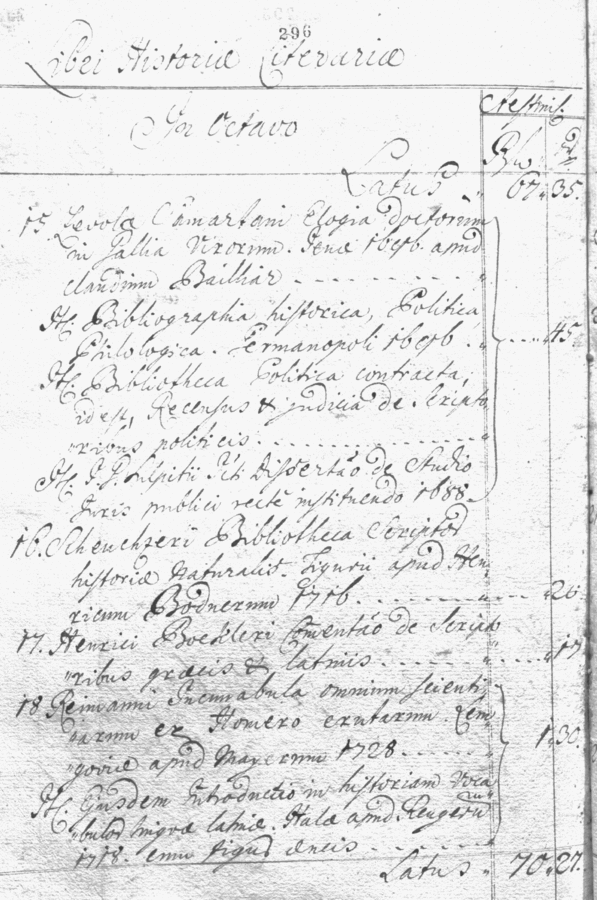 296
Libri Historiæ Literariæ
In Octavo
Æstimis.
Rfl. xr
Latus „ 67„35.
15 Scevolæ Samartani Elogia doctorum
in Gallia Virorum. Jenæ 1696. apud
Claudium Bailliar
It. Bibliographia historica, Politica
Philologica. Germanopoli 1696 . „ 45.
It. Bibliotheca Politica contracta,
id est, Recensus & judicia de Scripto
„ribus politicis.
It. I. G. Kulpitii Icti Dissertão de Studio
Juris publici rectè instituendo 1688.
16. Scheuchzeri Bibliotheca Scriptor
historiæ Naturalis. Tiguri apud Hen„
ricum Bodnerum 1716. „ 26.
17. Henrici Boecleri Comentão de Scripto
„ribus græcis & latinis. „ 17
18 Reimanni Incunabula omnium scienti„
„arum ex Homero erutarum. Lem„ 1„30.
„goviæ apud Mayerum 1728
It. Ejusdem Introductio in historiam Voca„
„bulor lingvæ latinæ. Halæ apud Rengerum
1718. cum figur æneis.
Latus „ 70„27.